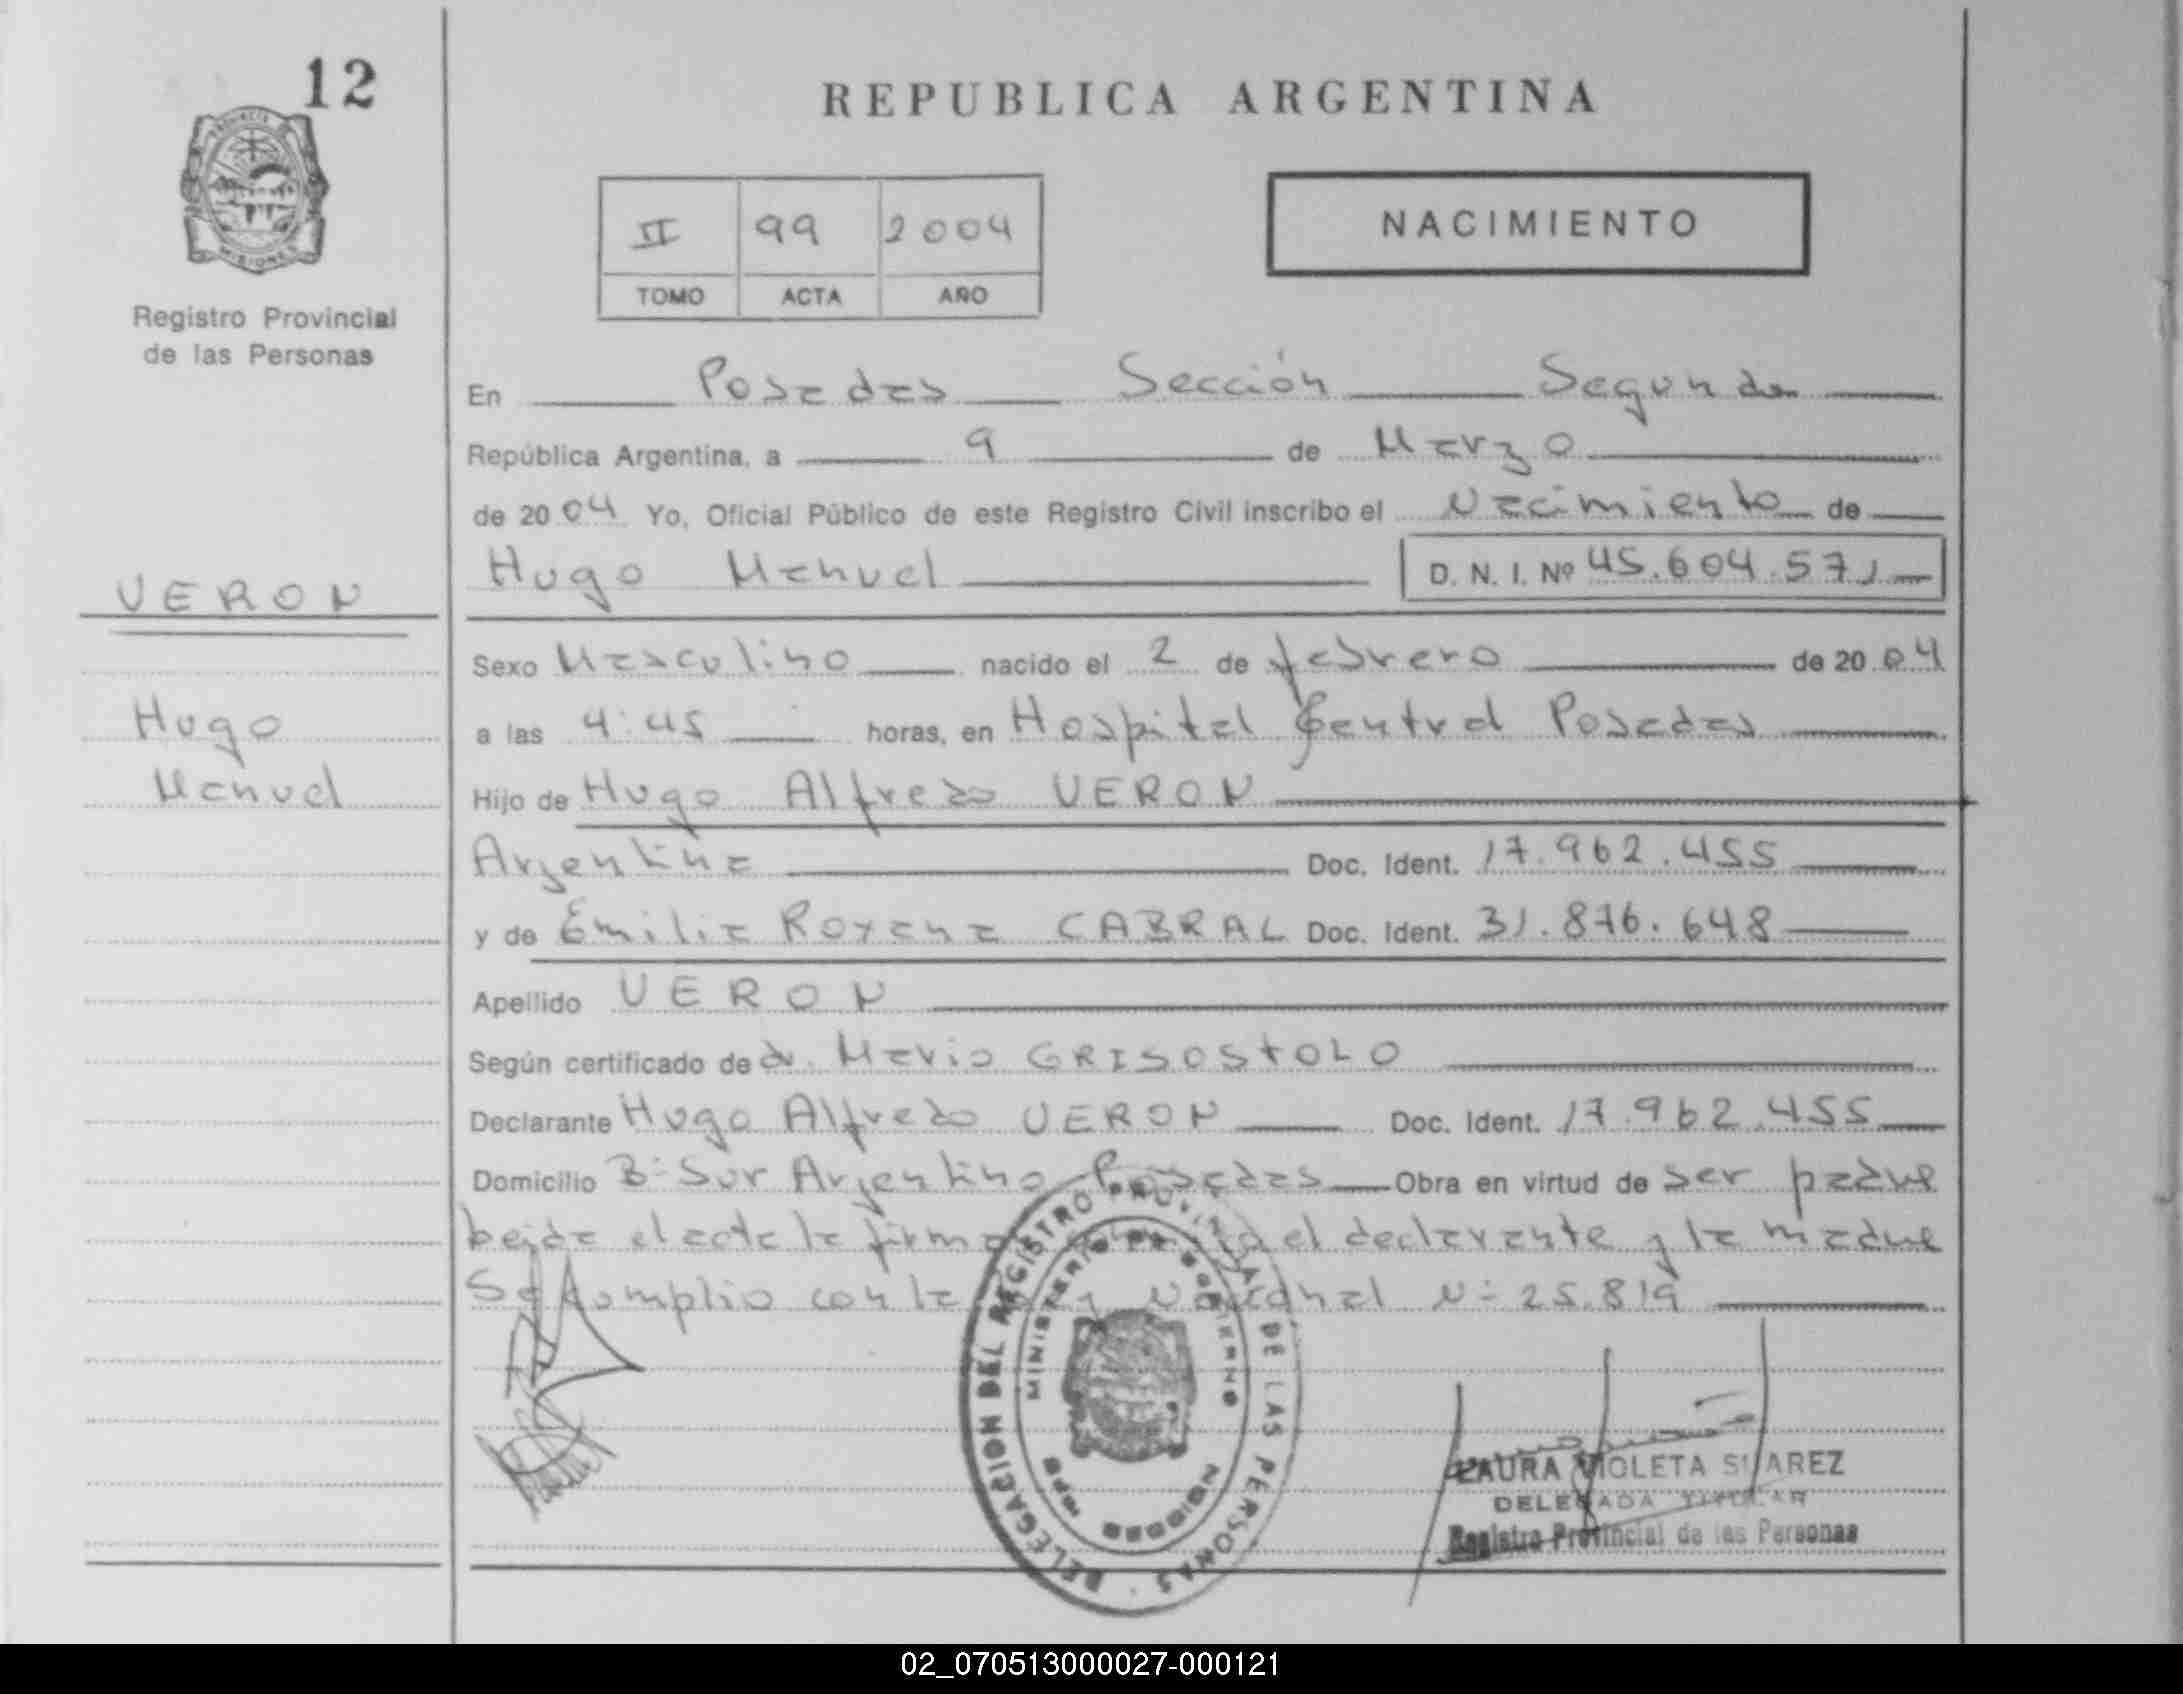 12
REPUBLICA ARGENTINA
PROVINCIA DE
MISIONES
II 99 2004
TOMO ACTA AÑO
NACIMIENTO
Registro Provincial
de las Personas
En Posadas Sección Segunda
República Argentina, a 9 de Marzo
de 2004 Yo, Oficial Público de este Registro Civil inscribo el Nacimiento de
Hugo Manuel D. N. I. Nº 45.604.571
VERON
Sexo Masculino nacido el 2 de febrero de 2004
Hugo
a las 4:45 horas, en Hospital Central Posadas
Manuel
Hijo de Hugo Alfredo VERON
Argentina Doc. Ident. 17.962.455
y de Emilia Roxana CABRAL Doc. Ident. 31.876.648
Apellido VERON
Según certificado de dr. Mario GRISOSTOLO
Declarante Hugo Alfredo VERON Doc. Ident. 17.962.455
Domicilio Bº Sur Argentino Posadas Obra en virtud de ser padre
leida el acta la firma el declarante y la madre
Se cumplio con la Ley Nacional Nº 25.819
DELEGACION DEL REGISTRO PROVINCIAL DE LAS PERSONAS
MINISTERIO DE GOBIERNO
POSADAS MISIONES
LAURA VIOLETA SUAREZ
DELEGADA TITULAR
Registro Provincial de las Personas
02_070513000027-000121